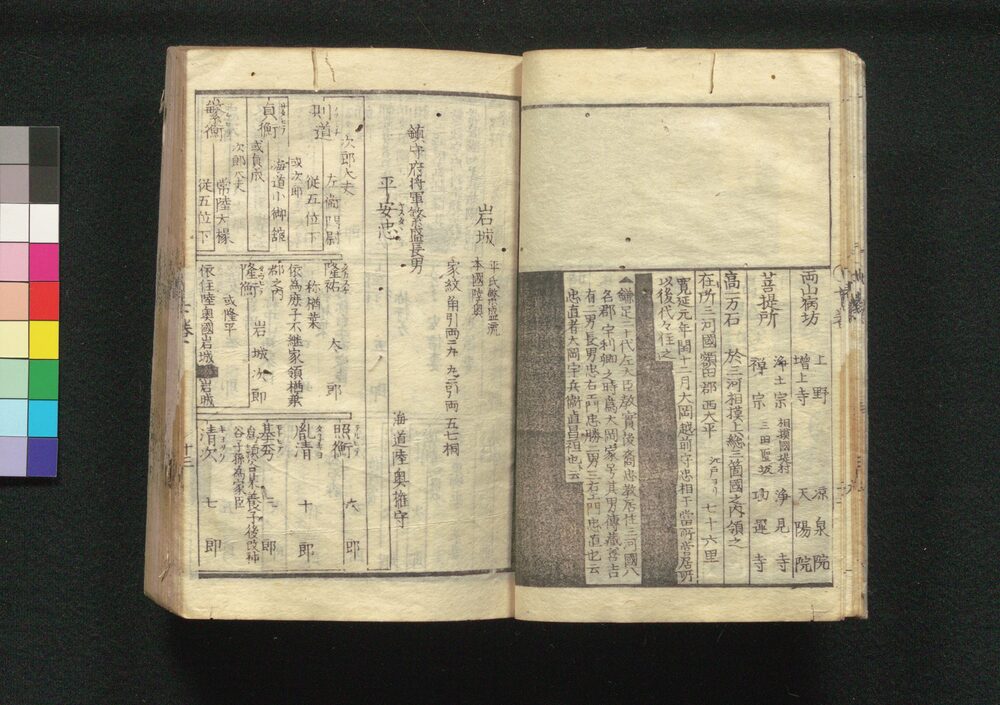 両山病坊 上野 凉泉院
増上寺 天陽院
菩提所 浄土宗 相摸國堤村 浄見寺
禅宗 三田聖坂 功運寺
高一万石 於三河相摸上総三箇國之内領之
在所三河國額田郡西大平 江戸ヨリ 七十六里
寛延元年閏十二月大岡越前守忠相于當所営居所
以後代々住之
鎌足二十代左大臣教實後裔忠教居住三河國八
名郡宇利郷之時為大岡
有二男長男忠右エ門忠勝二男三右エ門忠直也云
忠直者大岡宇兵衛直昌祖也云
岩城 平氏繁盛流
本國陸奥
家紋 角引両ニ九 九ニ引両 五七桐
鎮守府将軍繁盛長男
平安忠 海道陸奥権守
則道 次郎大夫
左衛門尉
従五位下
貞衡 或次郎
海道小御舘
或貞成
繁衡 次郎大夫
常陸大掾
従五位下
隆祐 太郎
称楢葉
依為庶子不継家領楢葉
郡之内
隆衡 岩城次郎
或隆平
依住陸奥國岩城 岩城
照衡 六郎
胤清 十郎
基秀 三郎
谷子孫為家臣
清次 七郎
十三